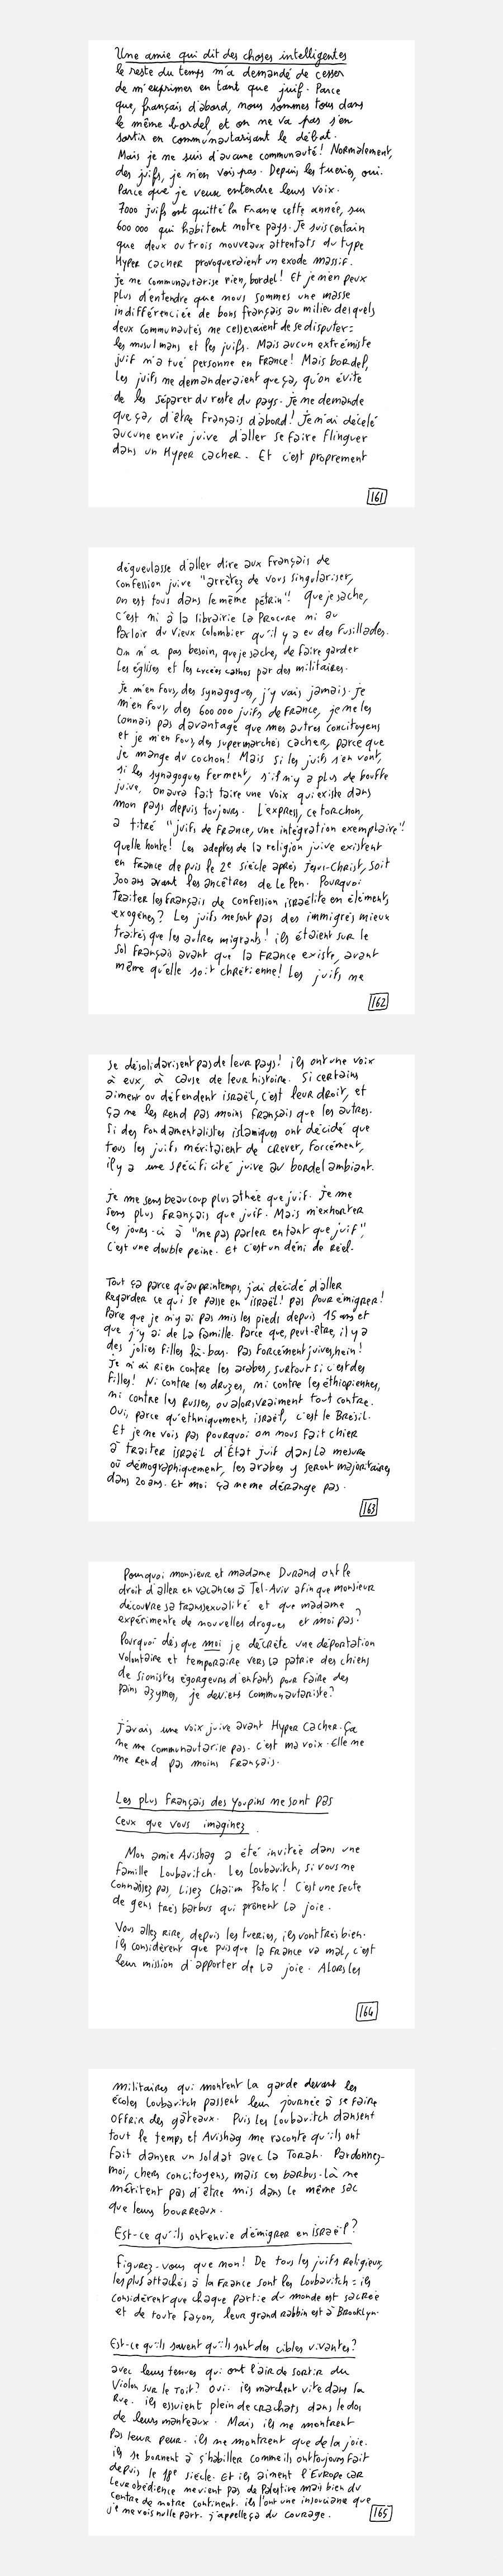 Une amie qui dit des choses intelligentes
le reste du temps m'a demandé de cesser
de m'exprimer en tant que juif. Parce
que, français d'abord, nous sommes tous dans
le même bordel, et on ne va pas s'en
sortir en communautarisant le débat.
Mais je ne suis d'aucune communauté! Normalement,
des juifs, je n'en vois pas. Depuis les tueries, oui.
Parce que je veux entendre leurs voix.
7000 juifs ont quitté la France cette année, sur
600 000 qui habitent notre pays. Je suis certain
que deux ou trois nouveaux attentats du type
Hyper Cacher provoqueraient un exode massif.
Je ne communautarise rien, bordel! Et je n'en peux
plus d'entendre que nous sommes une masse
indifférenciée de bons français au milieu desquels
deux communautés ne cesseraient de se disputer:
les musulmans et les juifs. Mais aucun extrémiste
juif n'a tué personne en France! Mais bordel,
les juifs ne demanderaient que ça, qu'on évite
de les séparer du reste du pays. Je ne demande
que ça, d'être français d'abord! Je n'ai décelé
aucune envie juive d'aller se faire flinguer
dans un Hyper Cacher. Et c'est proprement
161
dégueulasse d'aller dire aux français de
confession juive "arrêtez de vous singulariser,
on est tous dans le même pétrin"! Que je sache,
c'est ni à la librairie La Procure ni au
Parloir du Vieux Colombier qu'il y a eu des fusillades.
On n'a pas besoin, que je sache, de faire garder
les églises et les lycées cathos par des militaires.
Je m'en fous, des synagogues, j'y vais jamais. Je
m'en fous, des 600 000 juifs de France, je ne les
connais pas davantage que mes autres concitoyens
et je m'en fous, des supermarchés cacher, parce que
je mange du cochon! Mais si les juifs s'en vont,
si les synagogues ferment, s'il n'y a plus de bouffe
juive, on aura fait taire une voix qui existe dans
mon pays depuis toujours. L'express, ce torchon,
a titré "juifs de France, une intégration exemplaire"!
quelle honte! Les adeptes de la religion juive existent
en France depuis le 2e siècle après Jésus-Christ, soit
300 ans avant les ancêtres de Le Pen. Pourquoi
traiter les français de confession israélite en éléments
exogènes? Les juifs ne sont pas des immigrés mieux
traités que les autres migrants! ils étaient sur le
sol français avant que la France existe, avant
même qu'elle soit chrétienne! Les juifs ne
162
se désolidarisent pas de leur pays! ils ont une voix
à eux, à cause de leur histoire. Si certains
aiment ou défendent israël, c'est leur droit, et
ça ne les rend pas moins français que les autres.
Si des fondamentalistes islamiques ont décidé que
tous les juifs méritaient de crever, forcément,
il y a une spécificité juive au bordel ambiant.
Je me sens beaucoup plus athée que juif. Je me
sens plus français que juif. Mais m'exhorter
ces jours-ci à "ne pas parler en tant que juif",
c'est une double peine. Et c'est un déni de réel.
Tout ça parce qu'au printemps, j'ai décidé d'aller
Regarder ce qui se passe en israël! pas pour émigrer!
Parce que je n'y ai pas mis les pieds depuis 15 ans et
que j'y ai de la famille. Parce que, peut-être, il y a
des jolies filles là-bas. Pas forcément juives, hein!
Je n'ai rien contre les arabes, surtout si c'est des
filles! Ni contre les druzes, ni contre les éthiopiennes,
ni contre les Russes, ou alors vraiment tout contre.
Oui, parce qu'ethniquement, israël, c'est le Brésil.
Et je ne vois pas pourquoi on nous fait chier
à traiter israël d'État juif dans la mesure
où démographiquement, les arabes y seront majoritaires
dans 20 ans. Et moi ça ne me dérange pas.
163
Pourquoi monsieur et madame Durand ont le
droit d'aller en vacances à Tel-Aviv afin que monsieur
découvre sa transsexualité et que madame
expérimente de nouvelles drogues et moi pas?
Pourquoi dès que moi je décrète une déportation
volontaire et temporaire vers la patrie des chiens
de sionistes égorgeurs d'enfants pour faire des
pains azymes, je deviens communautariste?
J'avais une voix juive avant Hyper Cacher. Ça
ne me communautarise pas. C'est ma voix. Elle ne
me rend pas moins français.
Les plus français des youpins ne sont pas
ceux que vous imaginez.
Mon amie Avishag a été invitée dans une
famille Loubavitch. Les Loubavitch, si vous ne
connaissez pas, Lisez Chaïm Potok! C'est une secte
de gens très barbus qui prônent la joie.
Vous allez rire, depuis les tueries, ils vont très bien.
ils considèrent que puisque la France va mal, c'est
leur mission d'apporter de la joie. Alors les
164
militaires qui montent la garde devant les
écoles Loubavitch passent leur journée à se faire
offrir des gâteaux. Puis les Loubavitch dansent
tout le temps et Avishag me raconte qu'ils ont
fait danser un soldat avec la Torah. Pardonnez-
moi, chers concitoyens, mais ces barbus-là ne
méritent pas d'être mis dans le même sac
que leurs bourreaux.
Est-ce qu'ils ont envie d'émigrer en israël?
Figurez-vous que non! De tous les juifs religieux,
les plus attachés à la France sont les Loubavitch: ils
considèrent que chaque partie du monde est sacrée
et de toute façon, leur grand rabbin est à Brooklyn.
Est-ce qu'ils savent qu'ils sont des cibles vivantes?
avec leurs tenues qui ont l'air de sortir du
Violon sur le Toit? Oui. ils marchent vite dans la
Rue. ils essuient plein de crachats dans le dos
de leurs manteaux. Mais ils ne montrent
pas leur peur. ils ne montrent que de la joie.
ils se bornent à s'habiller comme ils ont toujours fait
depuis le 18e siècle. Et ils aiment l'Europe car
leur obédience ne vient pas de Palestine mais bien du
centre de notre continent. ils l'ont une insouciance que
je ne vois nulle part. j'appelle ça du courage.
165